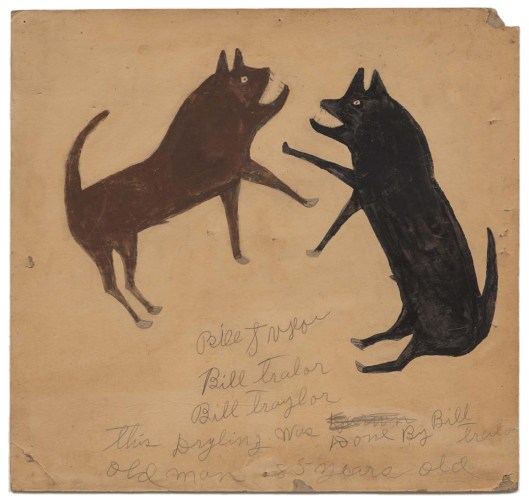 Bill
Bill Tralor
Bill Traylor
this Dryling was Done By Bill
old man 85 years old